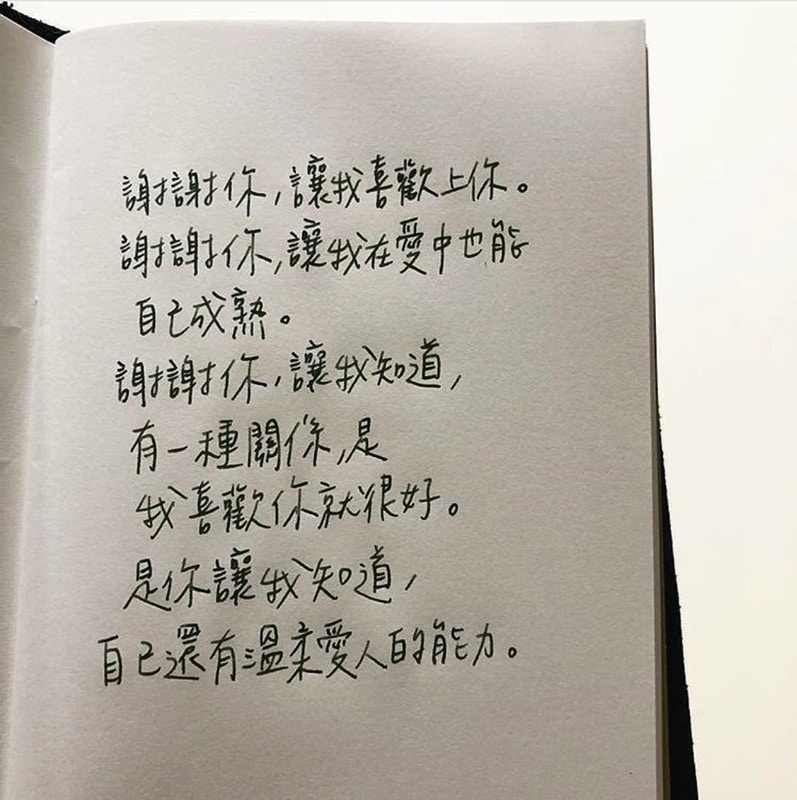 謝謝你,讓我喜歡上你。
謝謝你,讓我在愛中也能
自己成熟。
謝謝你,讓我知道,
有一種關係,是
我喜歡你就很好。
是你讓我知道,
自己還有溫柔愛人的能力。